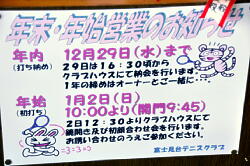 年末・年始営業のお知らせ
年内 12月29日(水)まで
(打ち納め) 29日は16:30頃から
クラブハウスにて納会を行います。
1年の締めはオーナーとご一緒に…
年始 1月2日(日)
(初打ち) 10:00より(開門9:45)
2日12:30よりクラブハウスにて
鏡開き及び初顔合わせ会を行います。
お誘い合わせのうえご参加ください。
富士見台テニスクラブ